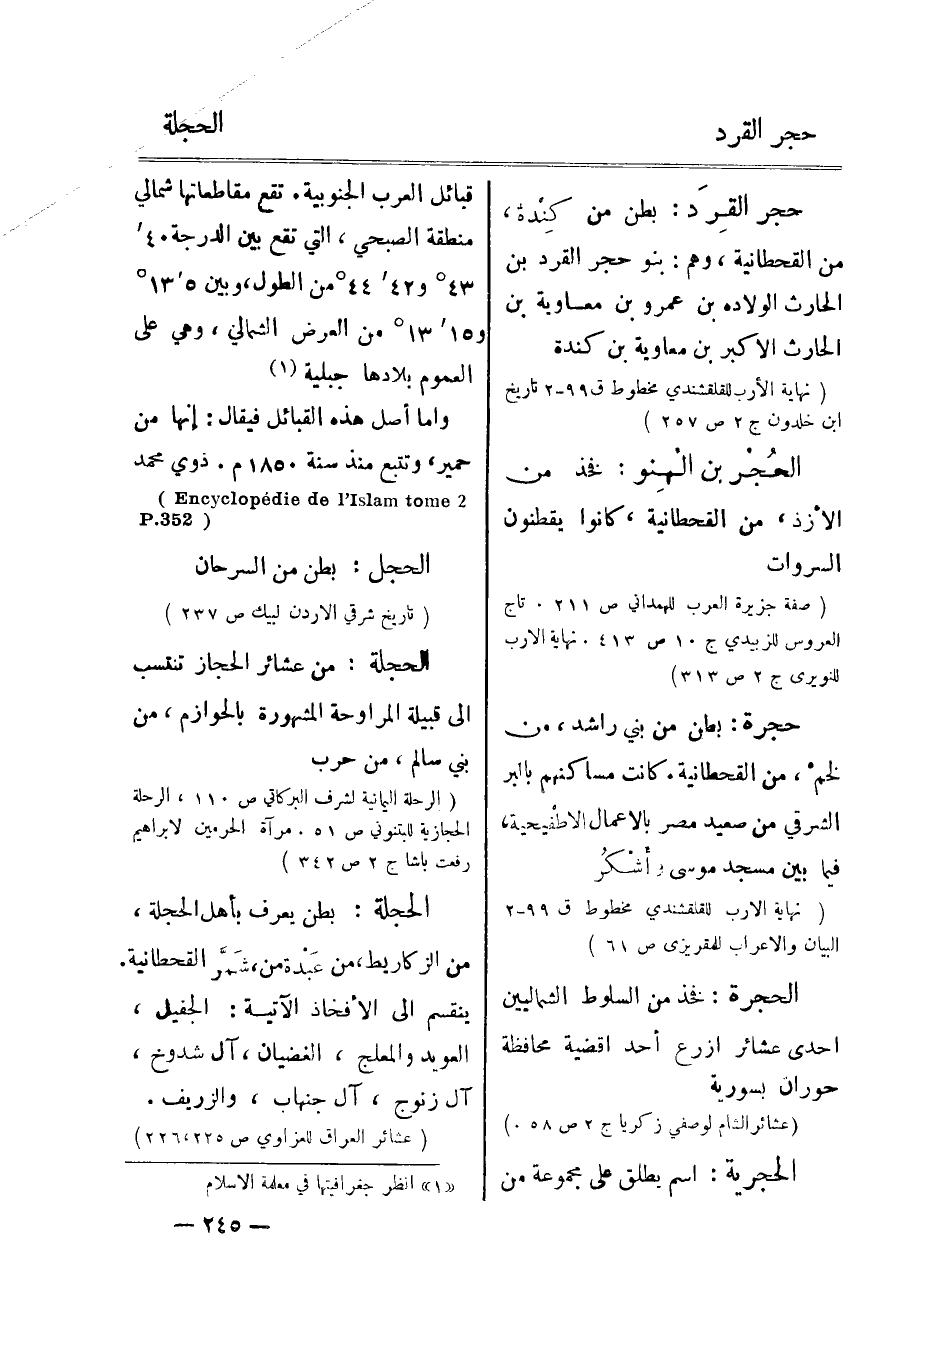 حجر القرد
الحجلة
حجر القِرَد : بطن من كِنْدة ،
من القحطانية ، وهم : بنو حجر القرد بن
الحارث الولاده بن عمرو بن معاوية بن
الحارث الاكبر بن معاوية بن كندة
( نهاية الأرب للقلقشندي مخطوط ق ٩٩-٢ تاريخ
ابن خلدون ج ٢ ص ٢٥٧ )
الحُجْر بن الْهِنو : فخذ من
الأزْد ، من القحطانية ، كانوا يقطنون
السروات
( صفة جزيرة العرب للهمداني ص ٢١١ . تاج
العروس للزبيدي ج ١٠ ص ٤١٣ . نهاية الارب
للنويرى ج ٢ ص ٣١٣)
حجرة : بطن من بني راشد ، من
لخمْ ، من القحطانية . كانت مساكنهم بالبر
الشرقي من صعيد مصر بالاعمال الاطفيحية ،
فيما بين مسجد موسى و أشْكُرُ
( نهاية الارب للقلقشندي مخطوط ق ٩٩-٢
البيان والاعراب للمقريزى ص ٦١ )
الحجرة : فخذ من السلوط الشماليين
احدى عشائر ازرع أحد اقضية محافظة
حوران بسورية
(عشائر الشام لوصفي زكريا ج ٢ ص ٥٨ .)
الحجرية : اسم يطلق على مجموعة من
قبائل العرب الجنوبية . تقع مقاطعاتها شمالي
منطقة الصبحي ، التي تقع بين الدرجة ٤٠′
٤٣° و٤٢′ ٤٤° من الطول ، وبين ٥′ ١٣°
و١٥′ ١٣° من العرض الشمالي ، وهي على
العموم بلادها جبلية (١)
واما أصل هذه القبائل فيقال : إنها من
حمير ، وتتبع منذ سنة ١٨٥٠ م . ذوي محمد
( Encyclopédie de l'Islam tome 2
P.352 )
الحجل : بطن من السرحان
( تاريخ شرقي الاردن لبيك ص ٢٣٧ )
الحجلة : من عشائر الحجاز تنتسب
الى قبيلة المراوحة المشهورة بالحوازم ، من
بني سالم ، من حرب
( الرحلة اليمانية لشرف البركاتي ص ١١٠ ، الرحلة
الحجازية للبتنوني ص ٥١ . مرآة الحرمين لابراهيم
رفعت باشا ج ٢ ص ٣٤٢ )
الحجلة : بطن يعرف بأهل الحجلة ،
من الزكاريط ، من عَبْدة من ، شَمَّر القحطانية .
ينقسم الى الأفخاذ الآتية : الجفيل ،
العويد والمعلج ، الغضيان ، آل شدوخ ،
آل زنوج ، آل جنهاب ، والزريف .
( عشائر العراق للعزاوي ص ٢٢٥ ، ٢٢٦)
«١» انظر جغرافيتها في معلمة الاسلام
— ٢٤٥ —